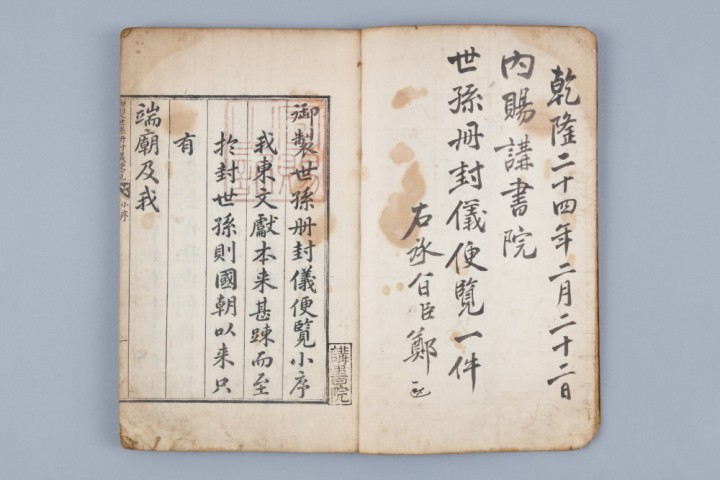 乾隆二十四年二月二十二日
內賜講書院
世孫册封儀便覽一件
右承旨臣鄭
御製世孫册封儀便覽小序
我東文獻本来甚踈而至
於封世孫則國朝以来只
有
端廟及我
講書院
小序